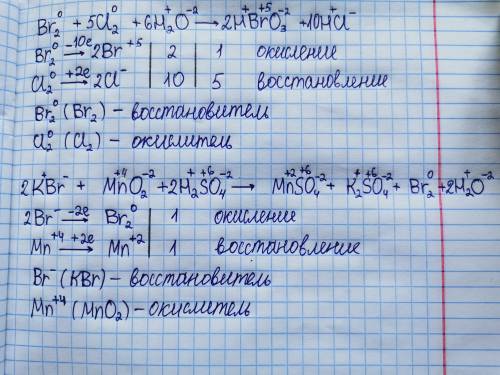 Br₂⁰ + 5Cl₂⁰ + 6H₂⁺O⁻² → 2H⁺Br⁺⁵O₃⁻² + 10H⁺Cl⁻
Br₂⁰ −10e→ 2Br⁺⁵ | 2 | 1 окисление
Cl₂⁰ +2e→ 2Cl⁻ | 10 | 5 восстановление
Br₂⁰ (Br₂) – восстановитель
Cl₂⁰ (Cl₂) – окислитель
2K⁺Br⁻ + Mn⁺⁴O₂⁻² + 2H₂⁺S⁺⁶O₄⁻² → Mn⁺²S⁺⁶O₄⁻² + K₂⁺S⁺⁶O₄⁻² + Br₂⁰ + 2H₂⁺O⁻²
2Br⁻ −2e→ Br₂⁰ | 1 окисление
Mn⁺⁴ +2e→ Mn⁺² | 1 восстановление
Br⁻ (KBr) – восстановитель
Mn⁺⁴ (MnO₂) – окислитель